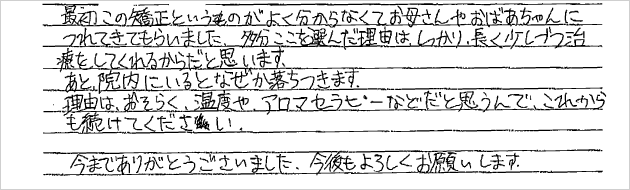 最初この矯正というものがよく分からなくてお母さんやおばあちゃんに
つれてきてもらいました、多分ここを選んだ理由は、しっかり、長く少しづつ治
療をしてくれるからだと思います。
あと、院内にいるとなぜか落ちつきます。
理由は、おそらく、温度や、アロマセラピーなどだと思うんで、これから
も続けてください。
今までありがとうございました、今後もよろしくお願いします。